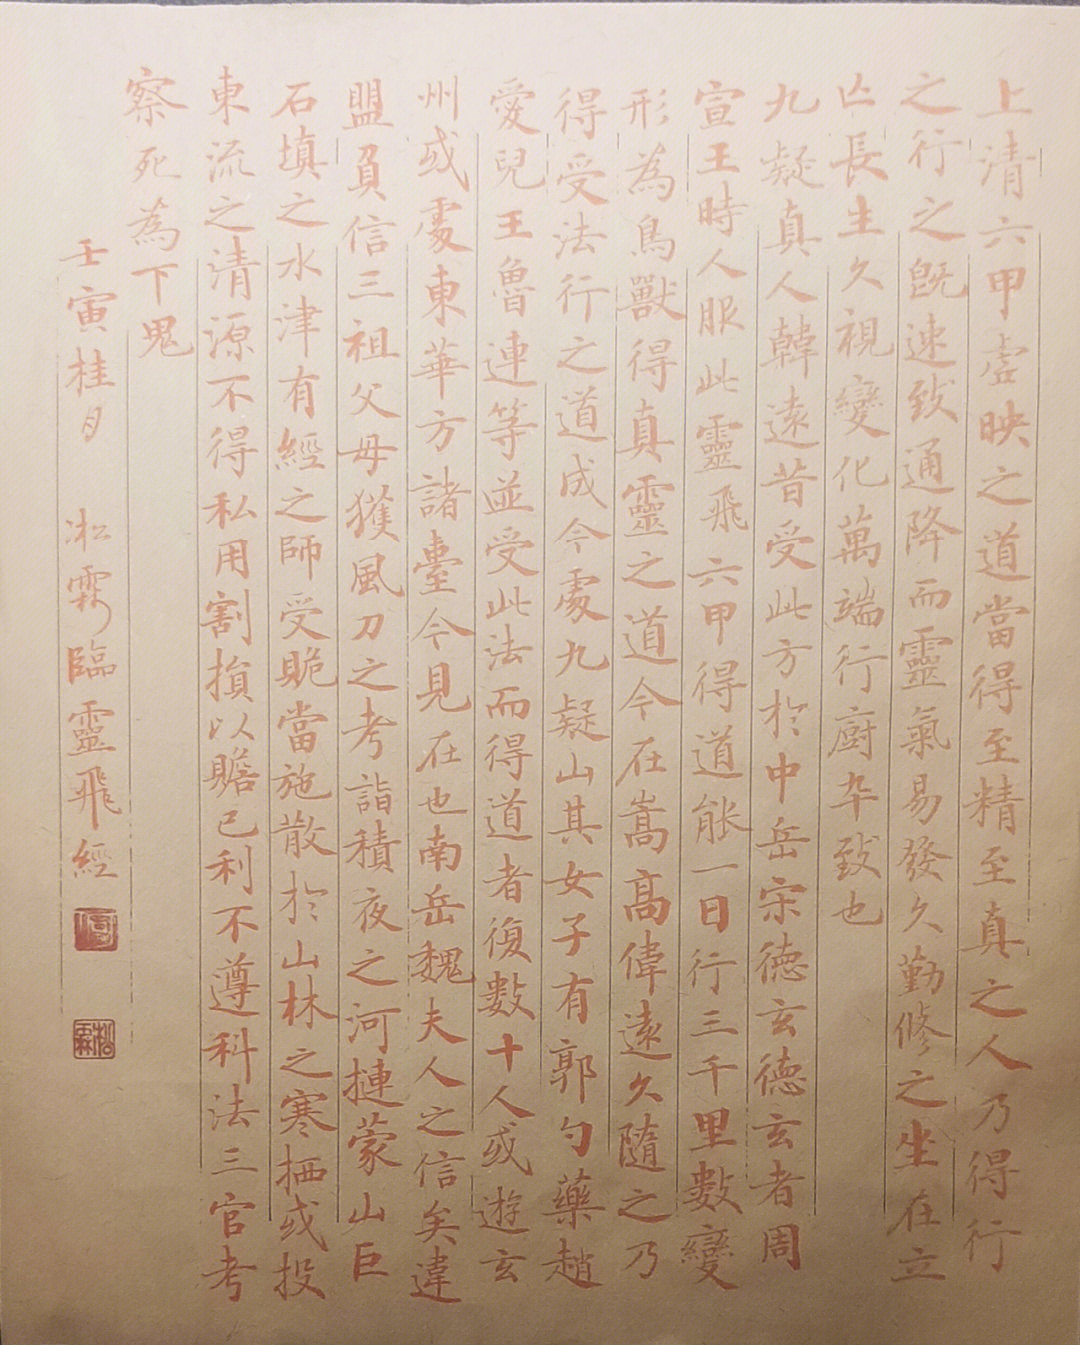 上清六甲虛映之道當得至精至真之人乃得行
之行之既速致通降而靈氣易發久勤修之坐在立
亾長生久視變化萬端行廚卒致也
九疑真人韓遠昔受此方於中岳宋德玄德玄者周
宣王時人服此靈飛六甲得道能一日行三千里數變
形為鳥獸得真靈之道今在嵩高偉遠久隨之乃
得受法行之道成今處九疑山其女子有郭勺藥趙
愛兒王魯連等並受此法而得道者復數十人或遊玄
州或處東華方諸臺今見在也南岳魏夫人之信矣違
盟負信三祖父母獲風刀之考詣積夜之河摙蒙山巨
石填之水津有經之師受贍當施散於山林之寒栖或投
東流之清源不得私用割損以贍己利不遵科法三官考
察死為下鬼
壬寅桂月 凇霖臨靈飛經